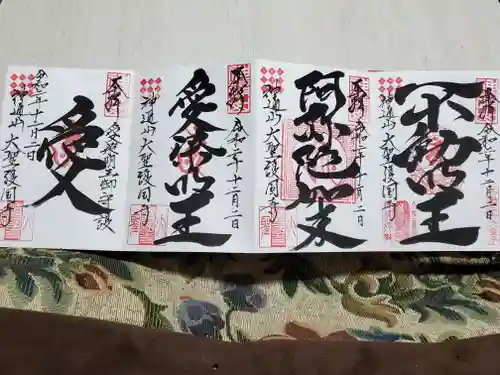 奉拝
不動明王
令和二年十二月二日
神道山 大聖護国寺
奉拝
阿弥陀如来
令和二年十二月二日
神道山 大聖護国寺
奉拝
愛染明王
令和二年十二月二日
神道山 大聖護国寺
奉拝
愛
令和二年十二月二日
神道山 大聖護国寺